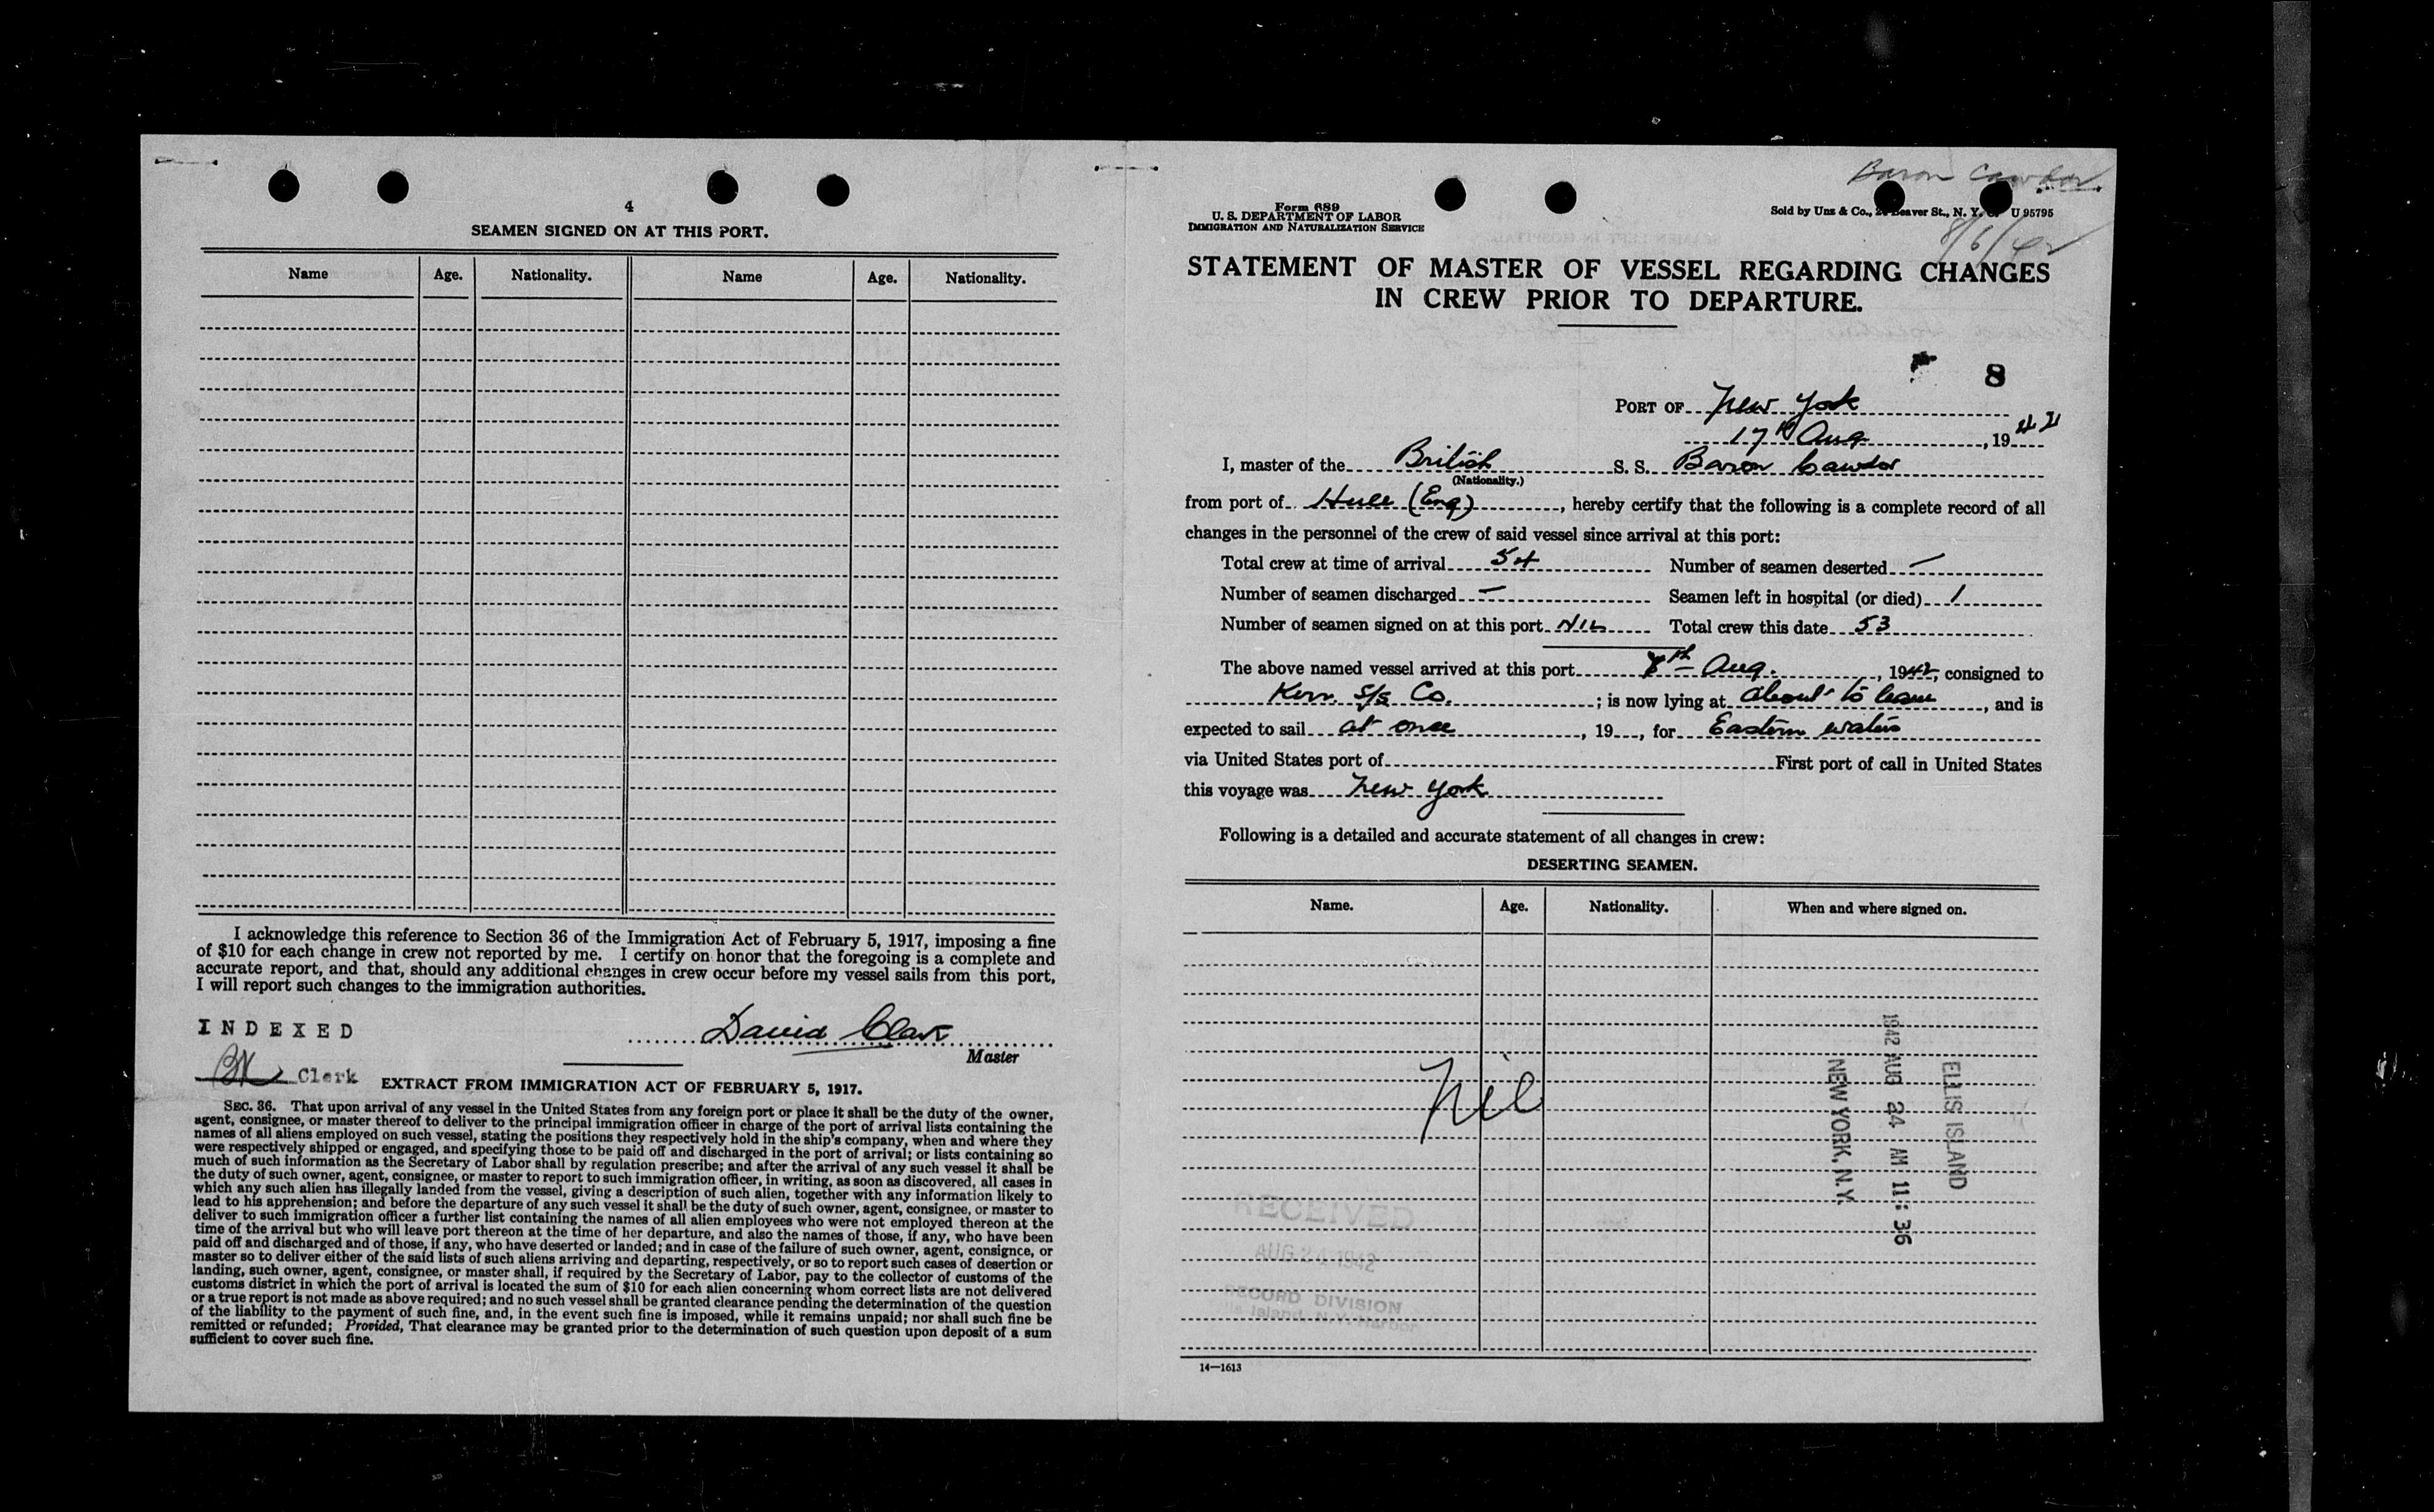 4
SEAMEN SIGNED ON AT THIS PORT.
Name Age. Nationality. Name Age. Nationality.
I acknowledge this reference to Section 36 of the Immigration Act of February 5, 1917, imposing a fine
of $10 for each change in crew not reported by me. I certify on honor that the foregoing is a complete and
accurate report, and that, should any additional changes in crew occur before my vessel sails from this port,
I will report such changes to the immigration authorities.
INDEXED
David Clark
Master
Clerk
EXTRACT FROM IMMIGRATION ACT OF FEBRUARY 5, 1917.
SEC. 36. That upon arrival of any vessel in the United States from any foreign port or place it shall be the duty of the owner,
agent, consignee, or master thereof to deliver to the principal immigration officer in charge of the port of arrival lists containing the
names of all aliens employed on such vessel, stating the positions they respectively hold in the ship's company, when and where they
were respectively shipped or engaged, and specifying those to be paid off and discharged in the port of arrival; or lists containing so
much of such information as the Secretary of Labor shall by regulation prescribe; and after the arrival of any such vessel it shall be
the duty of such owner, agent, consignee, or master to report to such immigration officer, in writing, as soon as discovered, all cases in
which any such alien has illegally landed from the vessel, giving a description of such alien, together with any information likely to
lead to his apprehension; and before the departure of any such vessel it shall be the duty of such owner, agent, consignee, or master to
deliver to such immigration officer a further list containing the names of all alien employees who were not employed thereon at the
time of the arrival but who will leave port thereon at the time of her departure, and also the names of those, if any, who have been
paid off and discharged and of those, if any, who have deserted or landed; and in case of the failure of such owner, agent, consignee, or
master so to deliver either of the said lists of such aliens arriving and departing, respectively, or so to report such cases of desertion or
landing, such owner, agent, consignee, or master shall, if required by the Secretary of Labor, pay to the collector of customs of the
customs district in which the port of arrival is located the sum of $10 for each alien concerning whom correct lists are not delivered
or a true report is not made as above required; and no such vessel shall be granted clearance pending the determination of the question
of the liability to the payment of such fine, and, in the event such fine is imposed, while it remains unpaid; nor shall such fine be
remitted or refunded; Provided, That clearance may be granted prior to the determination of such question upon deposit of a sum
sufficient to cover such fine.
Baron Cawdor
Form 689
U. S. DEPARTMENT OF LABOR
IMMIGRATION AND NATURALIZATION SERVICE
Sold by Unz & Co., Beaver St., N. Y. U 95795
8/6/42
STATEMENT OF MASTER OF VESSEL REGARDING CHANGES
IN CREW PRIOR TO DEPARTURE.
8
PORT OF New York
17th Aug, 1942
I, master of the British S. S. Baron Cawdor
(Nationality.)
from port of Hull (Eng), hereby certify that the following is a complete record of all
changes in the personnel of the crew of said vessel since arrival at this port:
Total crew at time of arrival 54 Number of seamen deserted —
Number of seamen discharged — Seamen left in hospital (or died) 1
Number of seamen signed on at this port NIL Total crew this date 53
The above named vessel arrived at this port 8th Aug., 1942, consigned to
Kerr S/S Co. ; is now lying at about to leave, and is
expected to sail at once, 19 , for Eastern waters
via United States port of First port of call in United States
this voyage was New York
Following is a detailed and accurate statement of all changes in crew:
DESERTING SEAMEN.
Name. Age. Nationality. When and where signed on.
Nil
ELLIS ISLAND
1942 AUG 24 AM 11:36
NEW YORK, N.Y.
RECEIVED
AUG 24 1942
RECORD DIVISION
Island, N.Y. Harbor
14—1613